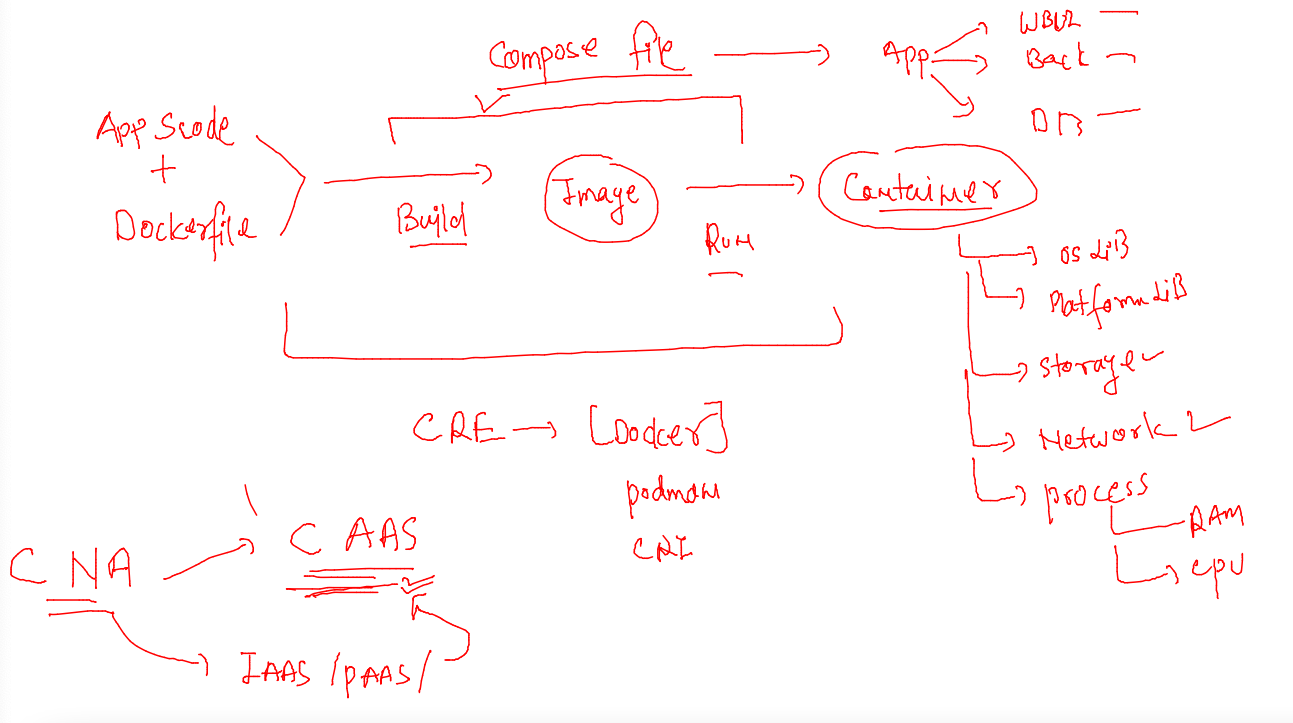 Compose file
App
WBUI
Back
DB
App Scode
+
Dockerfile
Build
Image
Run
Container
OS LiB
Platform LiB
Storage
Network
process
RAM
CPU
CRE → [Docker]
podman
CRI
CNA
CAAS
IAAS /PAAS/